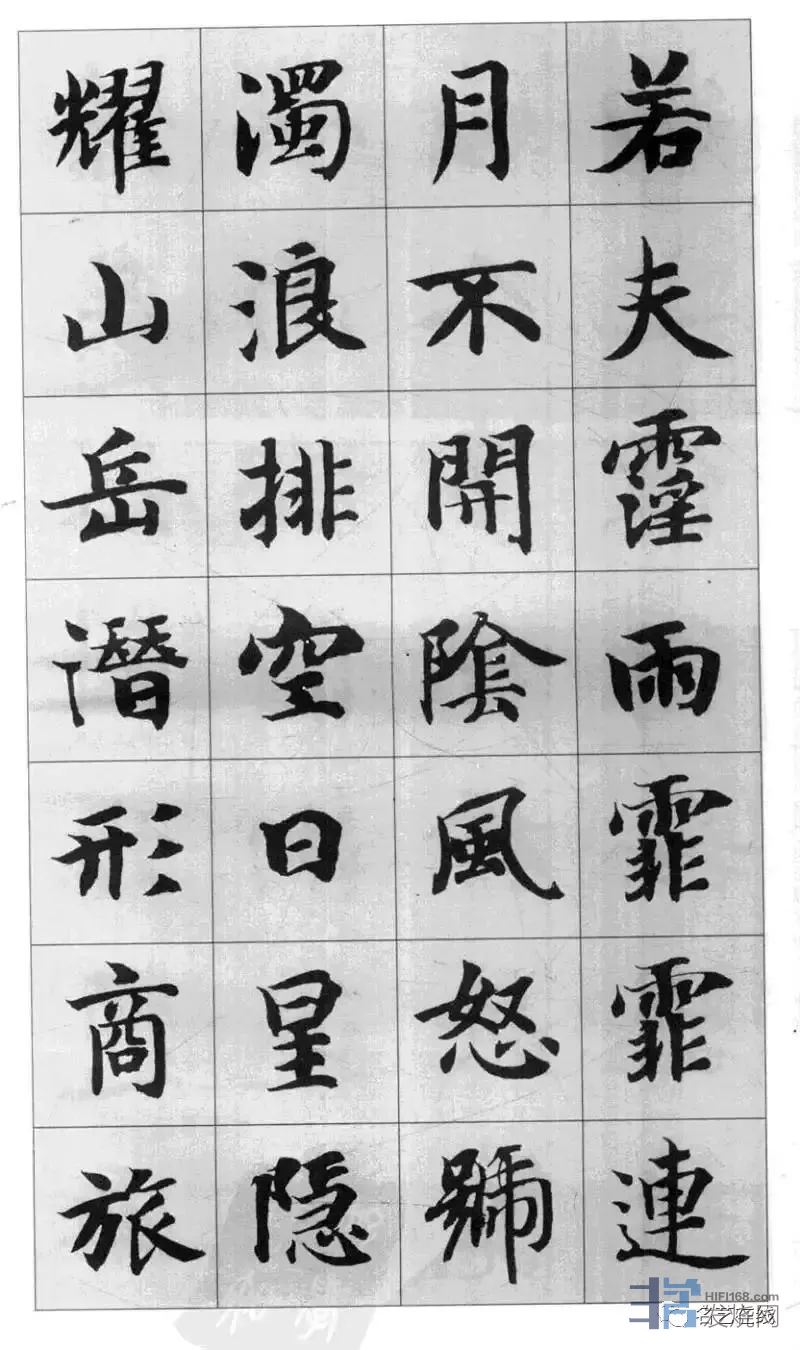 若夫霪雨霏霏連
月不開陰風怒號
濁浪排空日星隐
耀山岳潛形商旅
HIFI168.com